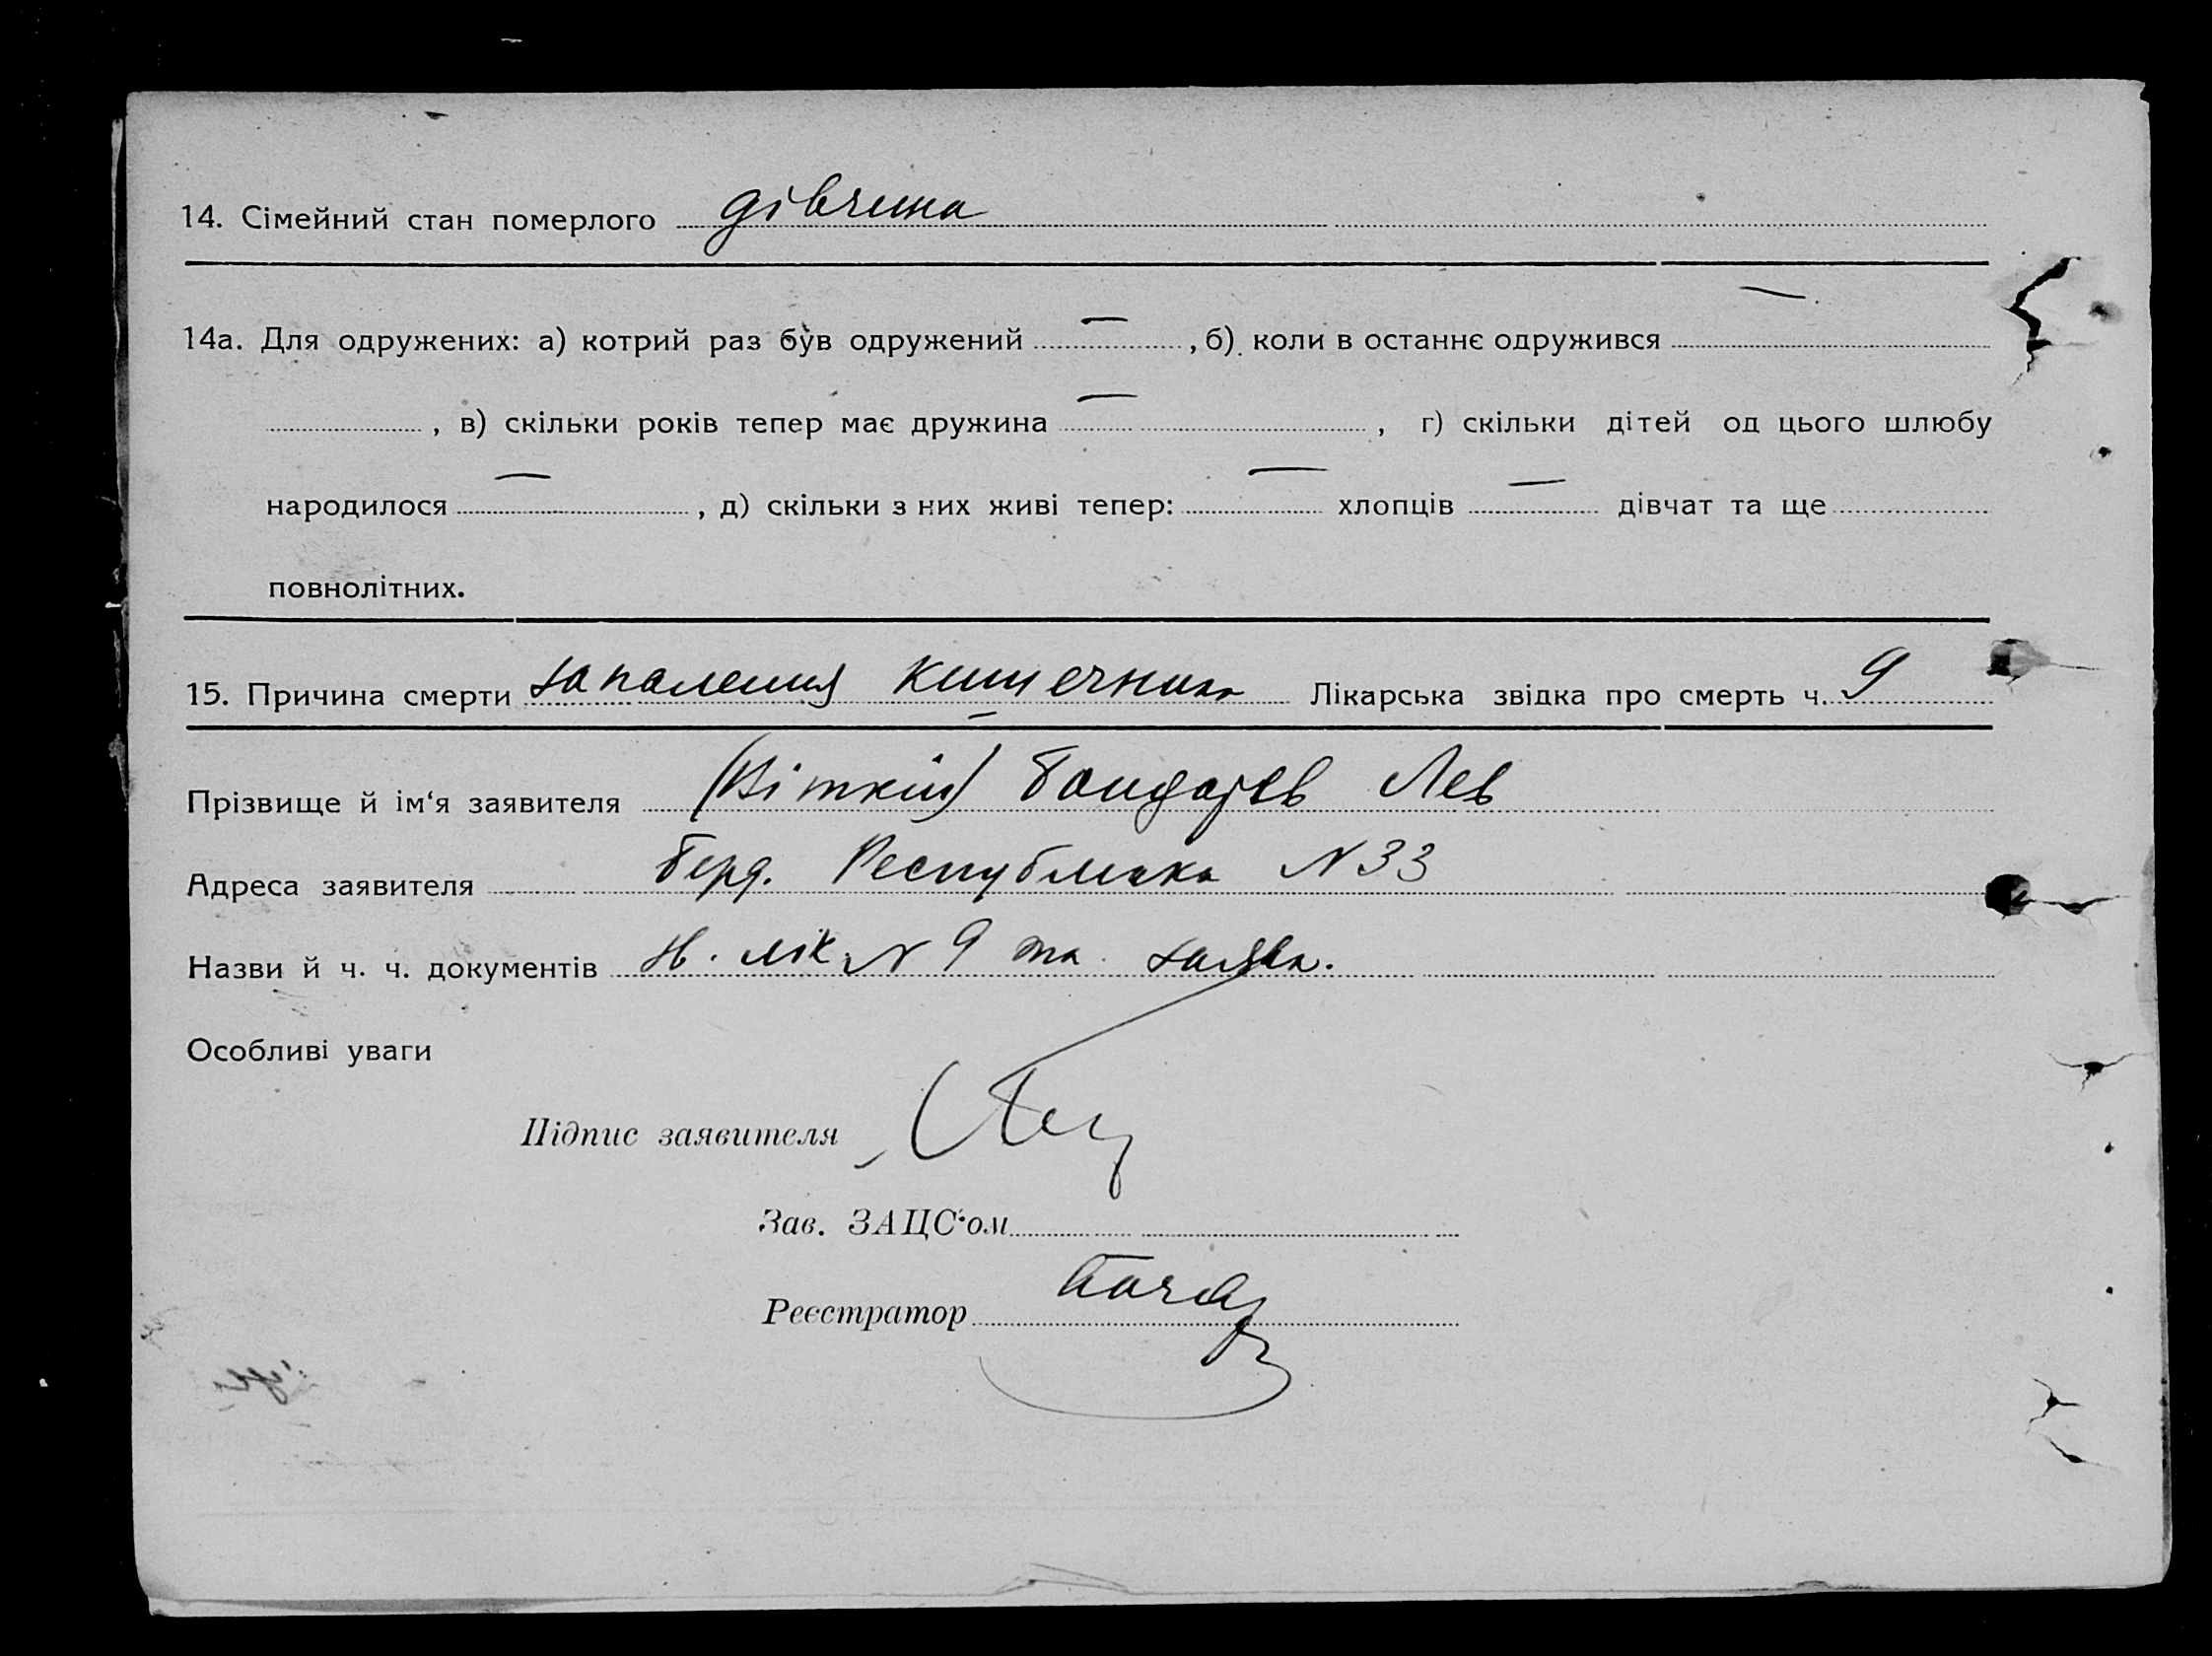 14. Сімейний стан померлого дівчина
14а. Для одружених: а) котрий раз був одружений — , б) коли в останнє одружився —
, в) скільки років тепер має дружина — , г) скільки дітей од цього шлюбу
народилося — , д) скільки з них живі тепер: — хлопців — дівчат та ще
повнолітних.
15. Причина смерти запалення кишечника Лікарська звідка про смерть ч. 9
Прізвище й ім‘я заявителя Бондарев Лев
Адреса заявителя Берд. Республика N 33
Назви й ч. ч. документів лік. N 9 та заява.
Особливі уваги
Підпис заявителя
Зав. ЗАЦС‘ом
Реєстратор